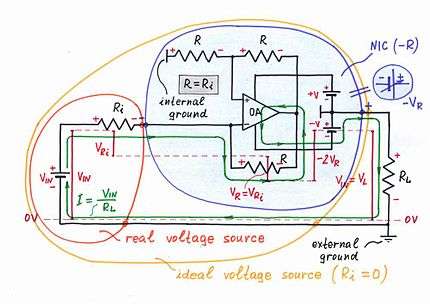 R
R
NIC (-R)
R = Ri
+
-
+V
-V
+
-VR
internal
ground
OA
Ri
R
-2VR
VRi
VR = VRi
VIN = VL
RL
VIN
VIN
I = VIN
RL
0V
0V
real voltage source
external
ground
ideal voltage source (Ri = 0)